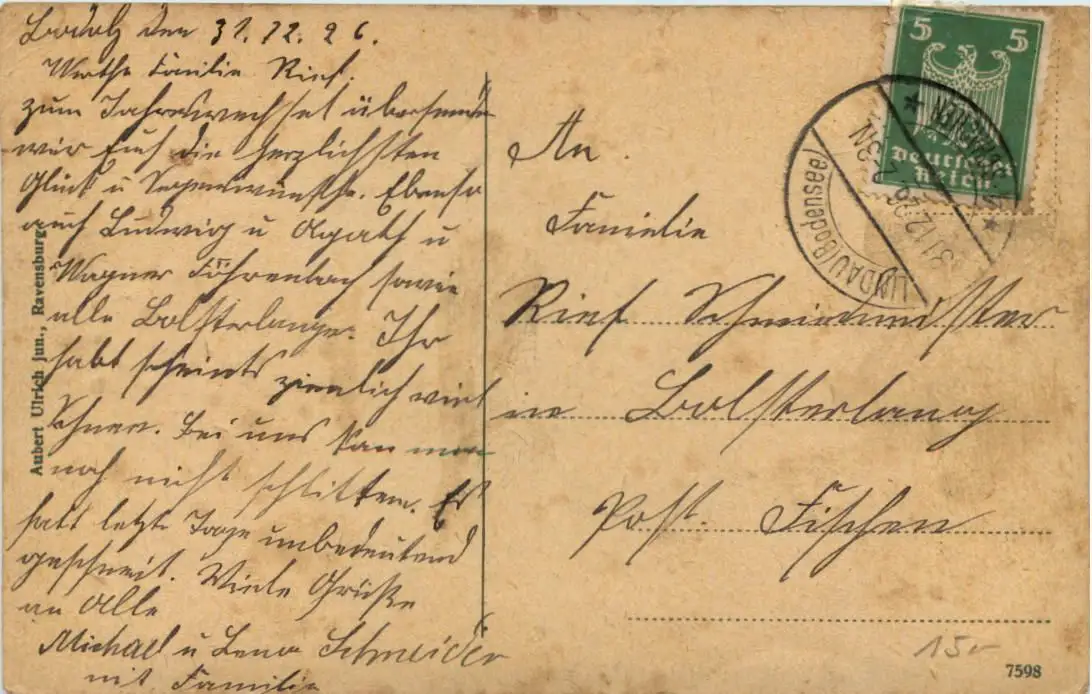 Bodolz den 31.12.26.
Werthe Familie Rief.
zum Jahreswechsel übersenden
wir Euch die herzlichsten
Glück u Segenswünsche. Ebenso
auch Ludwig u Agath u
Wagner Föhrenbach sowie
alle Bolsterlanger. Ihr
habt scheints ziemlich viel
Schnee. Bei uns kan man
noch nicht schlitten. Es
hatt letzte Tage unbedeutend
geschneit. Viele Grüße
an Alle
Michael u Lena Schneider
mit Familie
An
Familie
Rief Schmiedmeister
in Bolsterlang
Post. Fischen
5 5
Deutsches
Reich
LINDAU (Bodensee)
31.12.26
Aubert Ulrich jun., Ravensburg.
15.-
7598